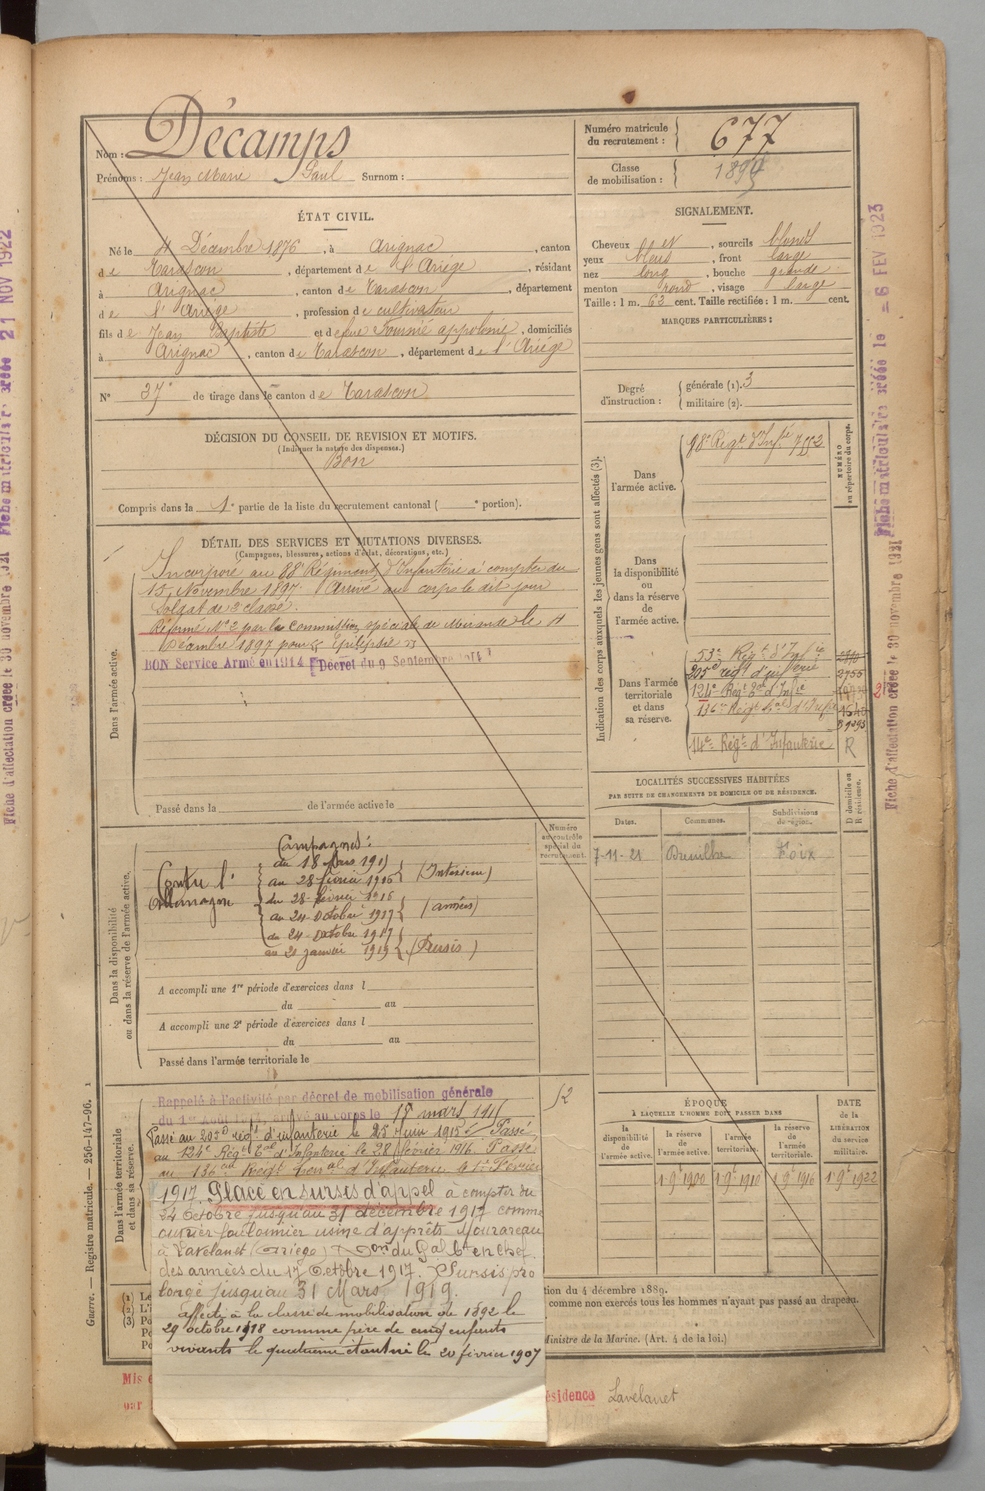 Nom : Décamps
Prénoms : Jean Marie Paul Surnom :
Numéro matricule du recrutement : 677
Classe de mobilisation : 1894
ÉTAT CIVIL.
Né le 4 Décembre 1876, à Arignac, canton
de Tarascon, département de l'Ariège, résidant
à Arignac, canton de Tarascon, département
de l'Ariège, profession de cultivateur
fils de Jean Baptiste et de feue Fournié appolonie, domiciliés
à Arignac, canton de Tarascon, département de l'Ariège
N° 37 de tirage dans le canton de Tarascon
SIGNALEMENT.
Cheveux , sourcils blonds
yeux bleus, front large
nez long, bouche grande
menton rond, visage large
Taille : 1 m. 63 cent. Taille rectifiée : 1 m. cent.
MARQUES PARTICULIÈRES :
Degré d'instruction : générale (1). 3
militaire (2).
DÉCISION DU CONSEIL DE REVISION ET MOTIFS.
(Indiquer la nature des dispenses.)
Bon
Compris dans la 1e partie de la liste du recrutement cantonal ( e portion).
DÉTAIL DES SERVICES ET MUTATIONS DIVERSES.
(Campagnes, blessures, actions d'éclat, décorations, etc.)
Dans l'armée active.
Incorporé au 88e Régiment d'Infanterie à compter du
15 Novembre 1897. Arrivé au corps le dit jour
Soldat de 2e classe.
Réformé No 2 par la commission spéciale de Mirande le 4
Décembre 1897 pour "Epilepsie"
BON Service Armé en 1914 Décret du 9 Septembre 1914
Passé dans la de l'armée active le
Indication des corps auxquels les jeunes gens sont affectés (3).
NUMÉRO au répertoire du corps.
Dans l'armée active.
88e Régt d'Infie
Dans la disponibilité ou dans la réserve de l'armée active.
Dans l'armée territoriale et dans sa réserve.
53e Régt d'Infie
205e régt d'infanterie 2755
124e Régt Eal d'Infie
136e Régt Eal d'Infie
14e Régt d'Infanterie R
LOCALITÉS SUCCESSIVES HABITÉES
PAR SUITE DE CHANGEMENTS DE DOMICILE OU DE RÉSIDENCE.
Dates. Communes. Subdivisions de région. D domicile ou R résidence.
7-11-21 Foix
Dans la disponibilité ou dans la réserve de l'armée active.
Numéro au contrôle spécial du recrutement.
Campagnes :
Contre l'Allemagne
du 18 Mars 1915
au 28 février 1916 (Intérieur)
du 28 février 1916
au 24 Octobre 1917 (armées)
du 24 Octobre 1917
au 21 janvier 1919 (Sursis)
A accompli une 1re période d'exercices dans l
du au
A accompli une 2e période d'exercices dans l
du au
Passé dans l'armée territoriale le
Dans l'armée territoriale et dans sa réserve.
Rappelé à l'activité par décret de mobilisation générale
du 1er Août 1914, arrivé au corps le 18 mars 1915
Passé au 205e régt d'infanterie le 25 juin 1915. Passé
au 124e Régt Eal d'Infanterie le 28 février 1916. Passé
au 136e Régt Eal d'Infanterie le 1er Février
1917. Placé en sursis d'appel à compter du
24 Octobre jusqu'au 31 décembre 1917 comme
ouvrier foulonnier usine d'apprêts Mourareau
à Lavelanet (Ariège) Don du Gal Ct en chef
des armées du 17 Octobre 1917. Sursis pro
longé jusqu'au 31 Mars 1919.
affecté à la classe de mobilisation de 1892 le
29 octobre 1918 comme père de cinq enfants
vivants le quatrième étant né le 20 février 1907
ÉPOQUE
À LAQUELLE L'HOMME DOIT PASSER DANS
la disponibilité de l'armée active. la réserve de l'armée active. l'armée territoriale. la réserve de l'armée territoriale.
DATE de la LIBÉRATION du service militaire.
1 9bre 1900 1 9bre 1910 1 9bre 1916 1 9bre 1922
tion du 4 décembre 1889.
comme non exercés tous les hommes n'ayant pas passé au drapeau.
Ministre de la Marine. (Art. 4 de la loi.)
Mis e
par
ésidence Lavelanet
Guerre. — Registre matricule. — 256-147-96.
Fiche d'affectation créée le 30 novembre 1921
Fiche matriculaire créée le 21 NOV 1922
Fiche matriculaire créée le = 6 FEV 1923
Fiche d'affectation créée le 30 novembre 1921